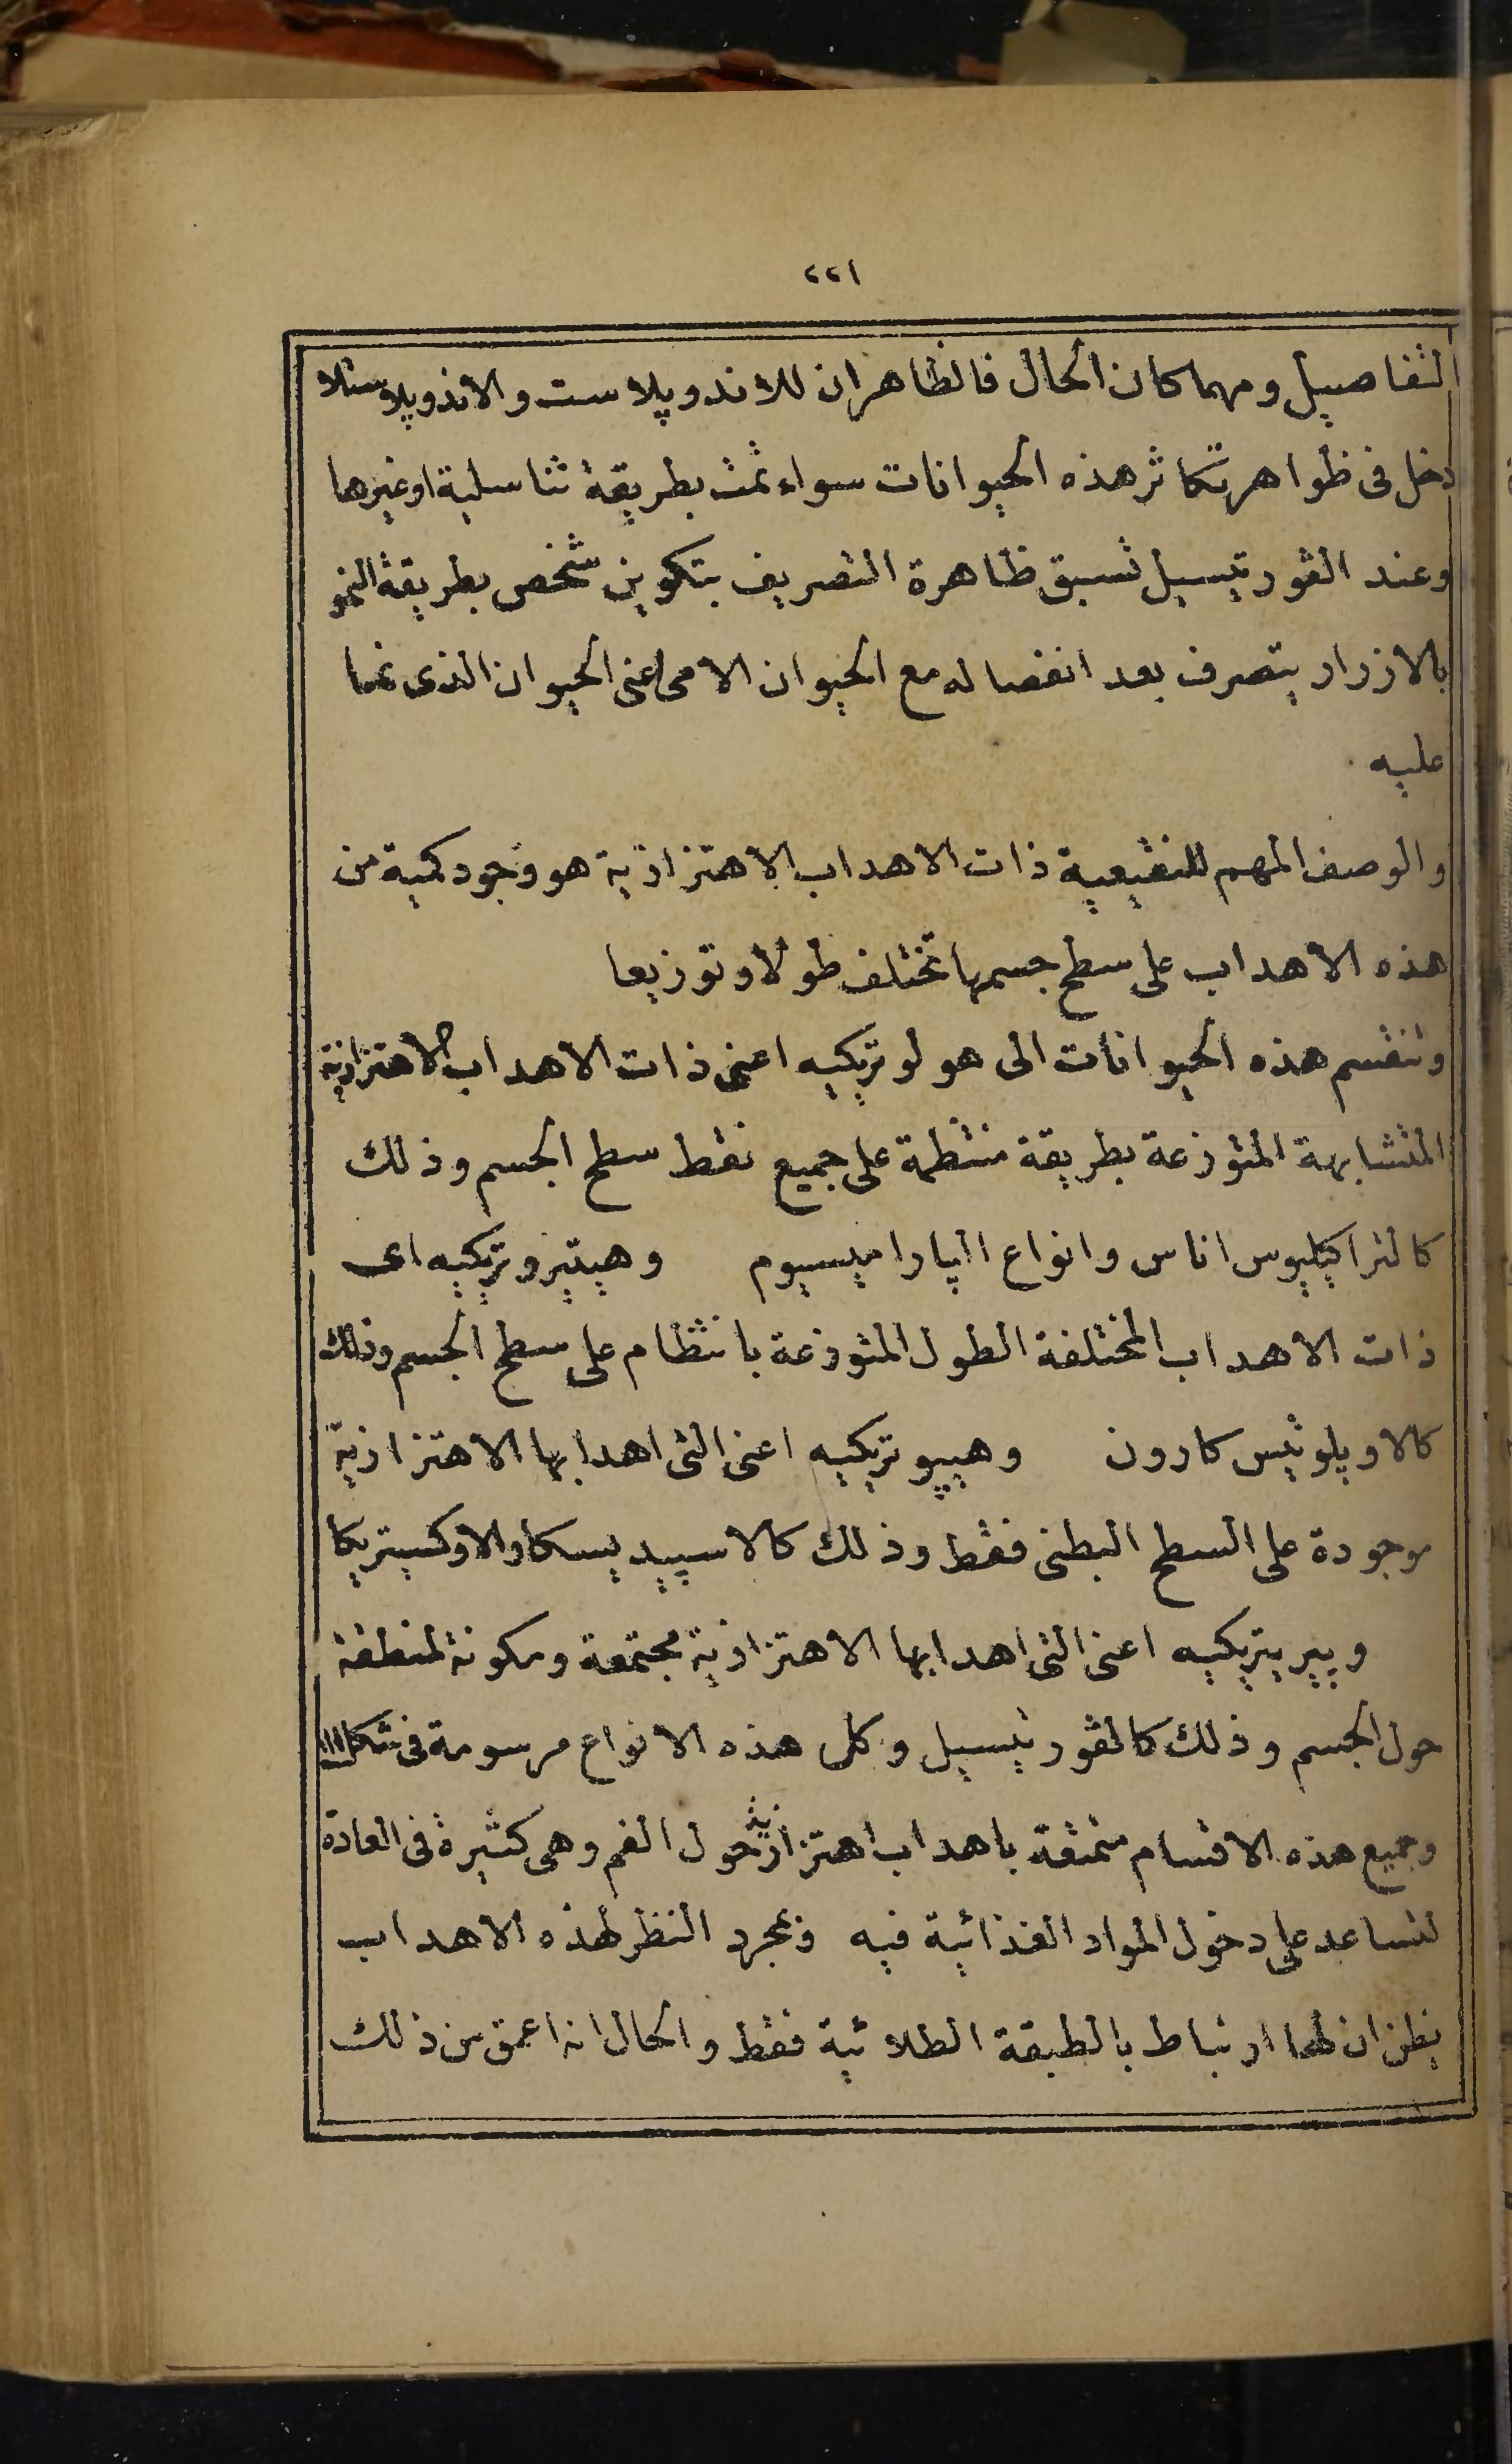 ٢٢١
التفاصيل ومهما كان الحال فالظاهر ان للاندوپلاست والاندوپلاستلا
دخل فى ظواهر تكاثر هذه الحيوانات سواء تمت بطريقة تناسلية اوغيرها
وعند الڤورتيسيل تسبق ظاهرة التصريف بتكوين شخص بطريقة النمو
بالازرار يتصرف بعد انفصاله مع الحيوان الامى اعنى الحيوان الذى نما
عليه
والوصف المهم للنقيعية ذات الاهداب الاهتزازية هو وجود كمية من
هذه الاهداب على سطح جسمها تختلف طولا وتوزيعا
وتنقسم هذه الحيوانات الى هولوتريكيه اعنى ذات الاهداب الاهتزازية
المتشابهة المتوزعة بطريقة منتظمة على جميع نقط سطح الجسم وذلك
كالتراكيليوس اناس وانواع الپاراميسيوم وهيتيروتريكيه اى
ذات الاهداب المختلفة الطول المتوزعة بانتظام على سطح الجسم وذلك
كالاويلوتيس كارون وهيپوتريكيه اعنى التى اهدابها الاهتزازية
موجودة على السطح البطنى فقط وذلك كالاسپيديسكا والاوكسيتريكا
وپيريتريكيه اعنى التى اهدابها الاهتزازية مجتمعة ومكونة لمنطقة
حول الجسم وذلك كالڤورتيسيل وكل هذه الانواع مرسومة فى شكل
وجميع هذه الاقسام متمتعة باهداب اهتزازية حول الفم وهى كثيرة فى العادة
لتساعد على دخول المواد الغذائية فيه وبمجرد النظر لهذه الاهداب
يظن ان لها ارتباط بالطبقة الطلائية فقط والحال انه اعمق من ذلك